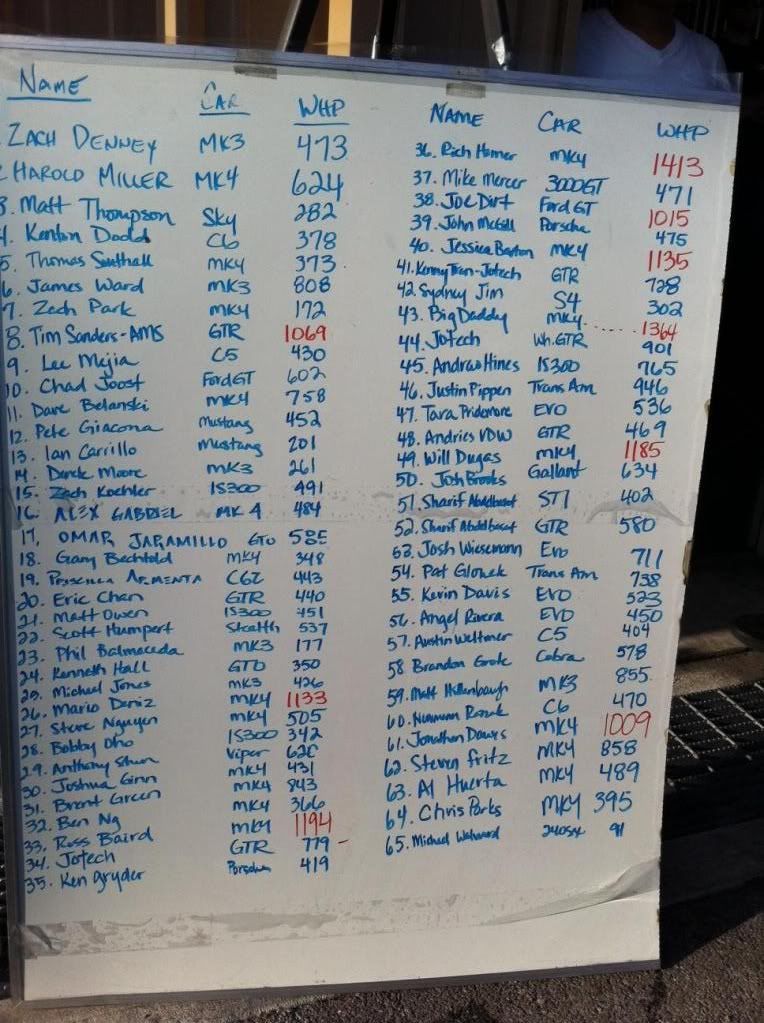 NAME CAR WHP
ZACH DENNEY MK3 473
HAROLD MILLER MK4 624
3. Matt Thompson Sky 282
4. Kenton Dodd C6 378
5. Thomas Southall mk4 373
6. James Ward mk3 808
7. Zach Park mk4 172
8. Tim Sanders-AMS GTR 1069
9. Lee Mejia C5 430
10. Chad Joost Ford GT 602
11. Dave Belanski mk4 758
12. Pete Giacona Mustang 452
13. Ian Carrillo Mustang 201
14. Derek Moore mk3 261
15. Zach Koehler IS300 491
16. ALEX GABRIEL MK4 484
17. OMAR JARAMILLO GTO 585
18. Gary Bechtold mk4 348
19. PRISCILLA ARMENTA C6Z 443
20. Eric Chan GTR 440
21. Matt Owen IS300 451
22. Scott Humpert Stealth 537
23. Phil Balmaceda mk3 177
24. Kenneth Hall GTO 350
25. Michael Jones mk3 426
26. Mario Deniz mk4 1133
27. Steve Nguyen mk4 505
28. Bobby Oho IS300 342
29. Anthony Shun Viper 626
30. Joshua Ginn mk4 431
31. Brent Green mk4 843
32. Ben Ng mk4 366
33. Ross Baird mk4 1194
34. Jotech GTR 779 -
35. Ken Gryder Porsche 419
NAME CAR WHP
36. Rich Homer mk4 1413
37. Mike Mercer 3000GT 471
38. Joe Dirt Ford GT 1015
39. John McGill Porsche 475
40. Jessica Barton mk4 1135
41. Kenny Tran-Jotech GTR 728
42. Sydney Jim S4 302
43. Big Daddy mk4 ...... 1364
44. Jotech Wh.GTR 901
45. Andrew Hines IS300 765
46. Justin Pippen Trans Am 946
47. Tara Pridemore EVO 536
48. Andries VDW GTR 469
49. Will Dugas mk4 1185
50. Josh Brooks Gallant 634
51. Sharif Abdelbasat STI 402
52. Sharif Abdelbasat GTR 580
53. Josh Wiesemann Evo 711
54. Pat Glowek Trans Am 738
55. Kevin Davis EVO 523
56. Angel Rivera EVO 450
57. Austin Weltmer C5 404
58 Brandon Grote Cobra 578
59. Matt Hillenbaugh mk3 855
60. C6 470
61. Jonathan Daws MK4 1009
62. Steven Fritz MK4 858
63. Al Huerta MK4 489
64. Chris Parks MK4 395
65. Michael 240SX 91